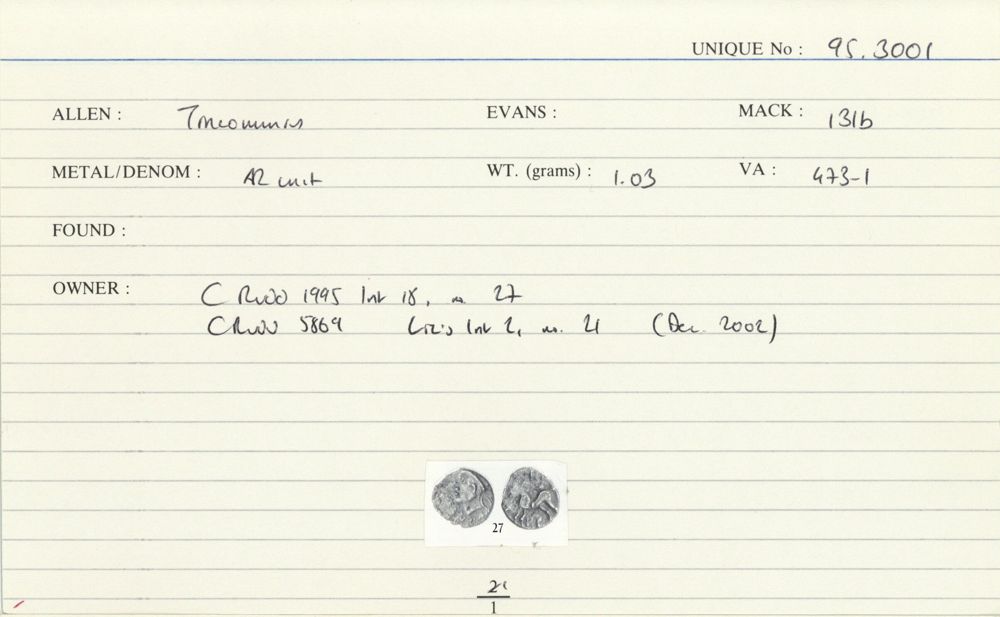 UNIQUE No : 95.3001
ALLEN : EVANS : MACK : 131b
METAL/DENOM : AR unit WT. (grams) : 1.03 VA : 473-1
FOUND :
OWNER : C Rudd 1995 list 18, no. 27
C Rudd 5869 Liz's list 2, no. 21 (Dec. 2002)
27
21
1